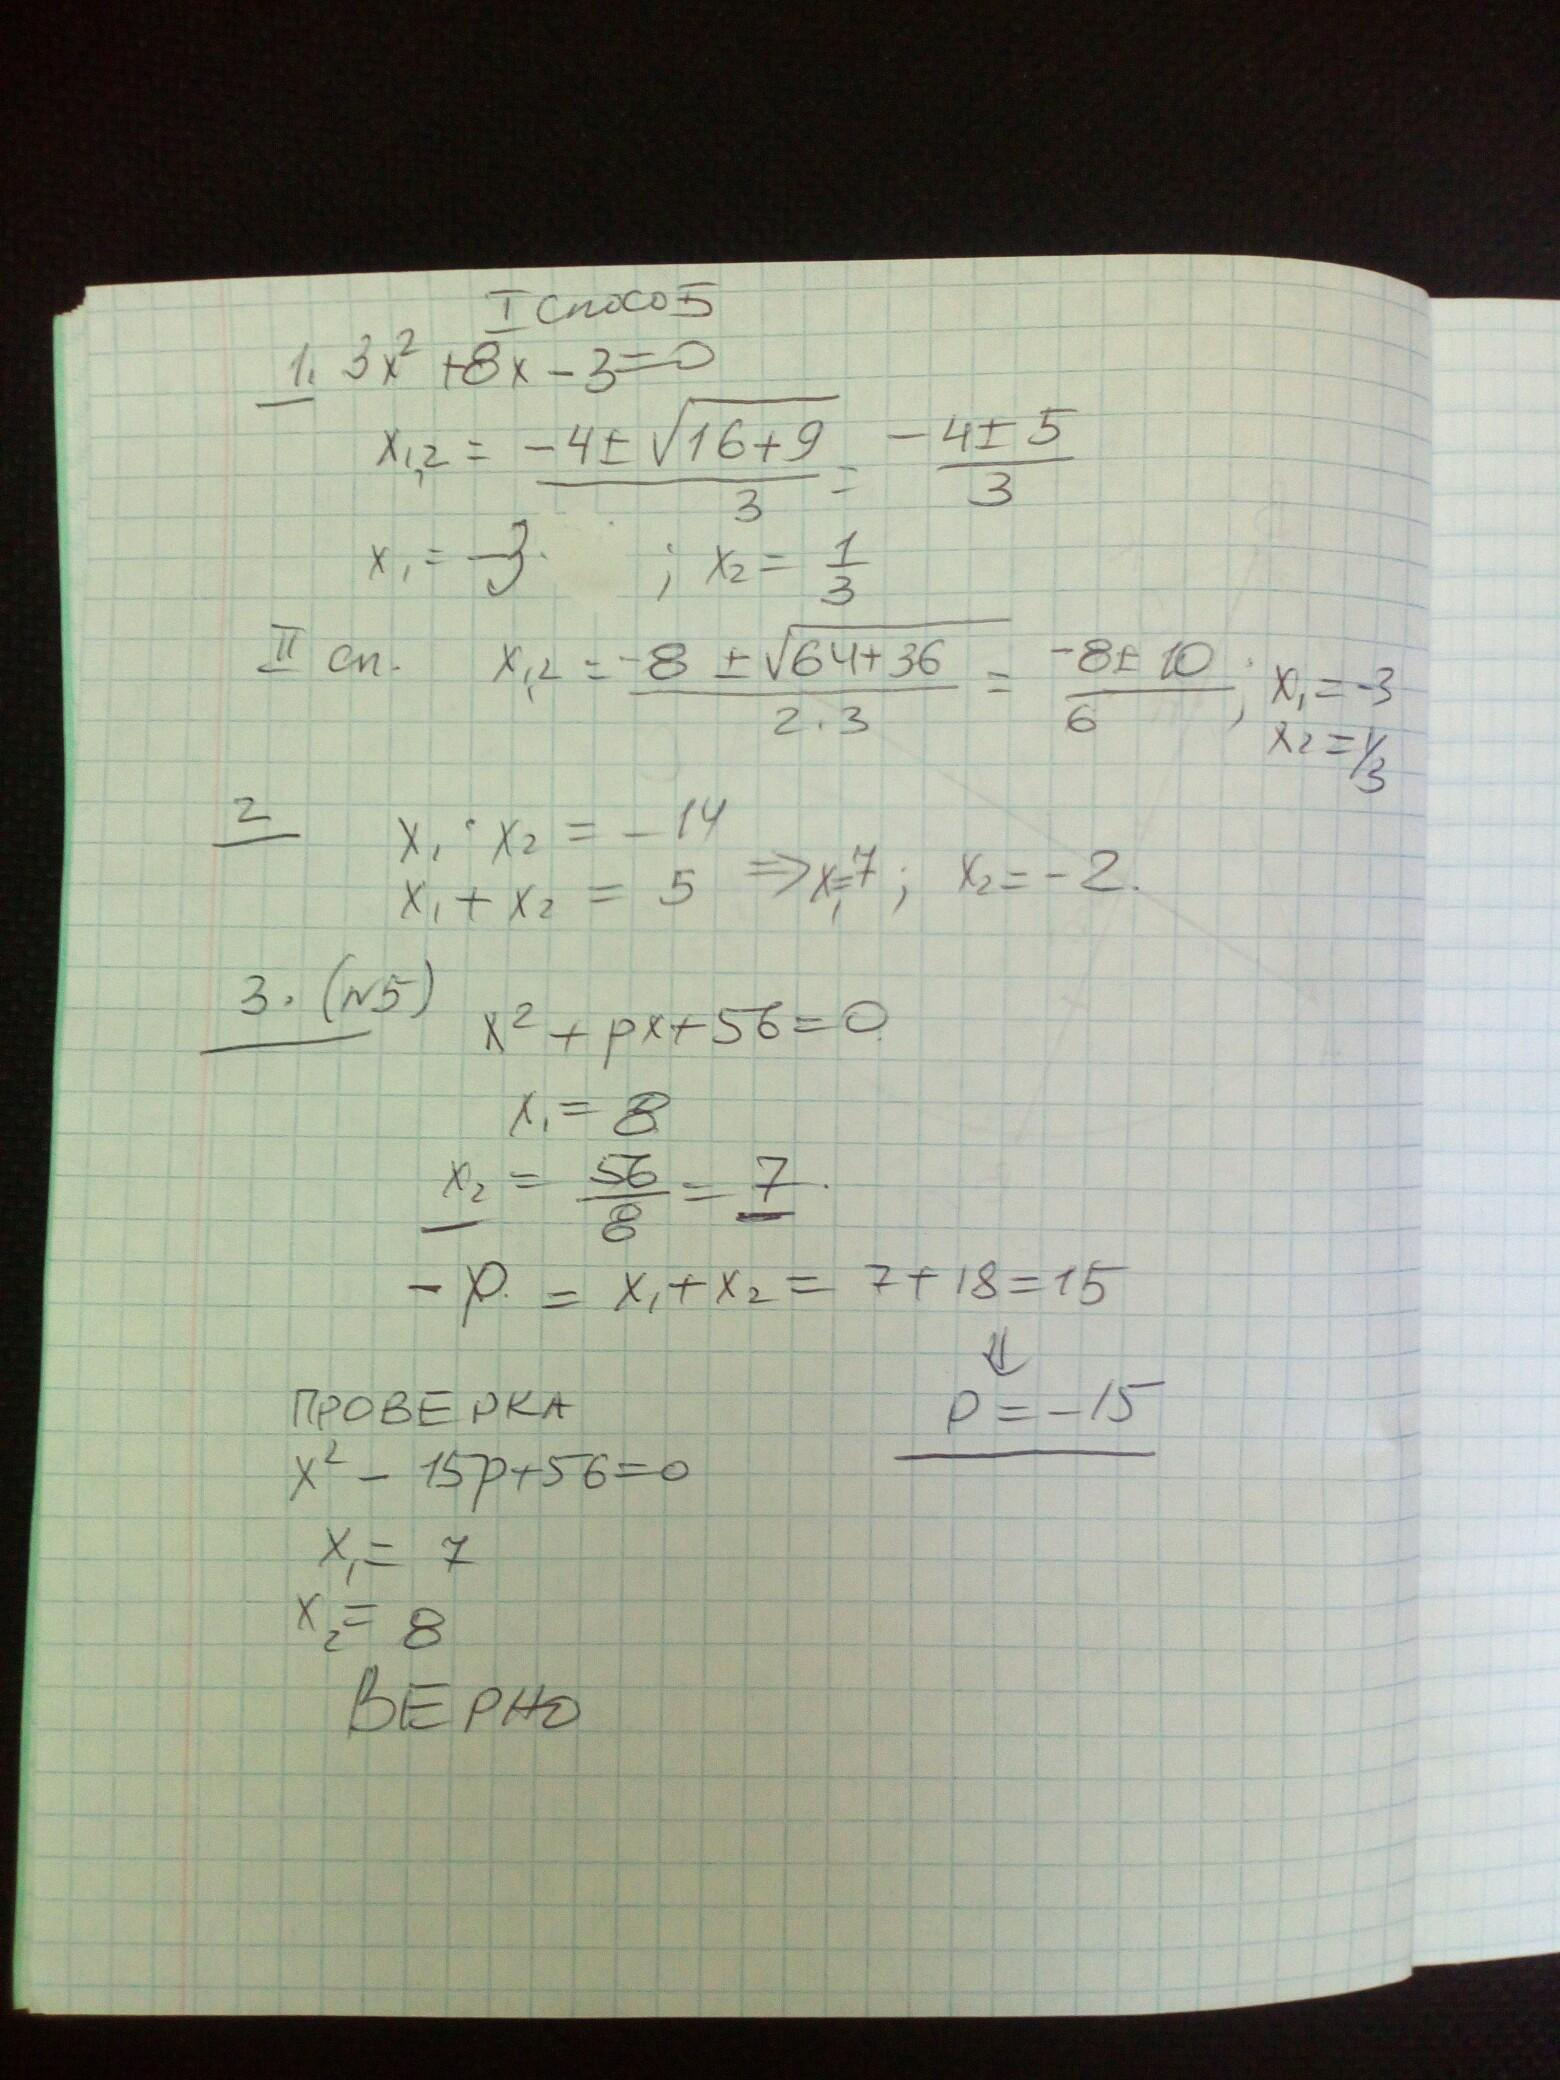 I способ
1. 3x² + 8x - 3 = 0
x₁,₂ = (-4 ± √(16+9))/3 = (-4 ± 5)/3
x₁ = -3 ; x₂ = 1/3
II сп. x₁,₂ = (-8 ± √(64+36))/(2·3) = (-8 ± 10)/6 ; x₁ = -3
x₂ = 1/3
2 x₁ · x₂ = -14
x₁ + x₂ = 5 ⇒ x₁ = 7 ; x₂ = -2.
3. (N5)
x² + px + 56 = 0
x₁ = 8
x₂ = 56/8 = 7.
-p. = x₁ + x₂ = 7 + 18 = 15
⇓
p = -15
ПРОВЕРКА
x² - 15p + 56 = 0
x₁ = 7
x₂ = 8
ВЕРНО